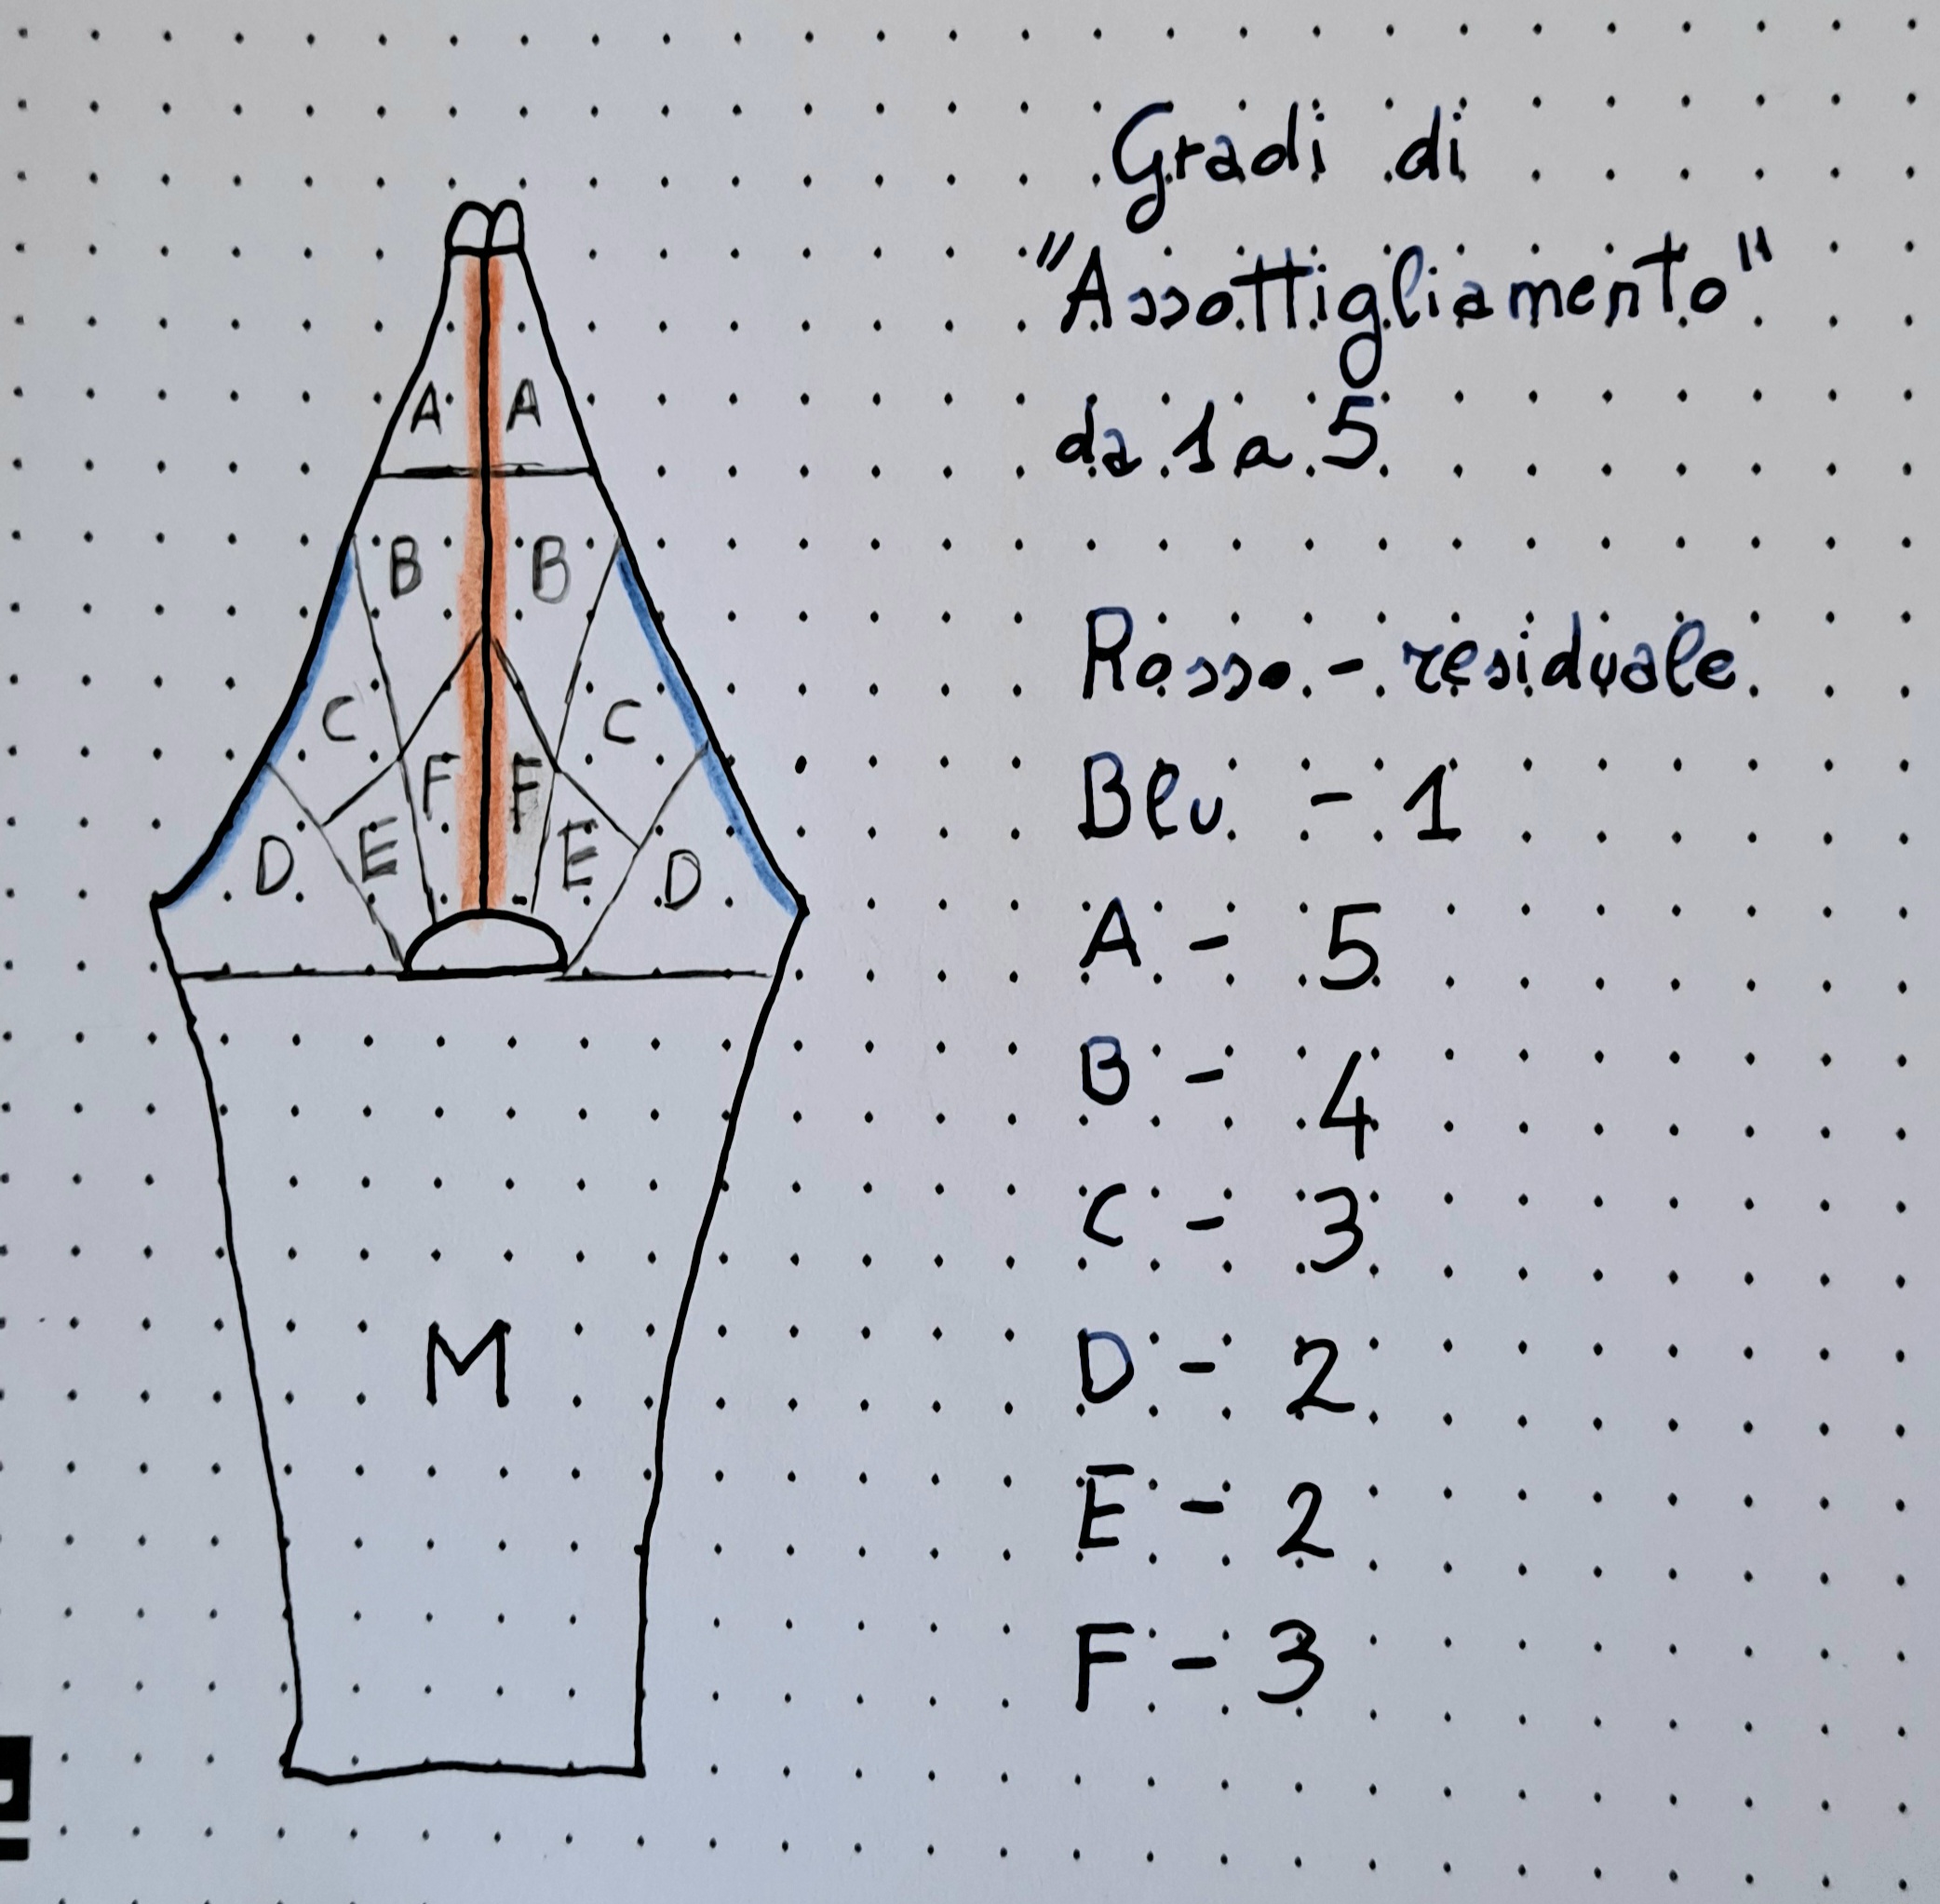 Gradi di
"Assottigliamento"
da 1 a 5
Rosso - residuale
Blu - 1
A - 5
B - 4
C - 3
D - 2
E - 2
F - 3
A A
B B
C C
F F
E E
D D
M